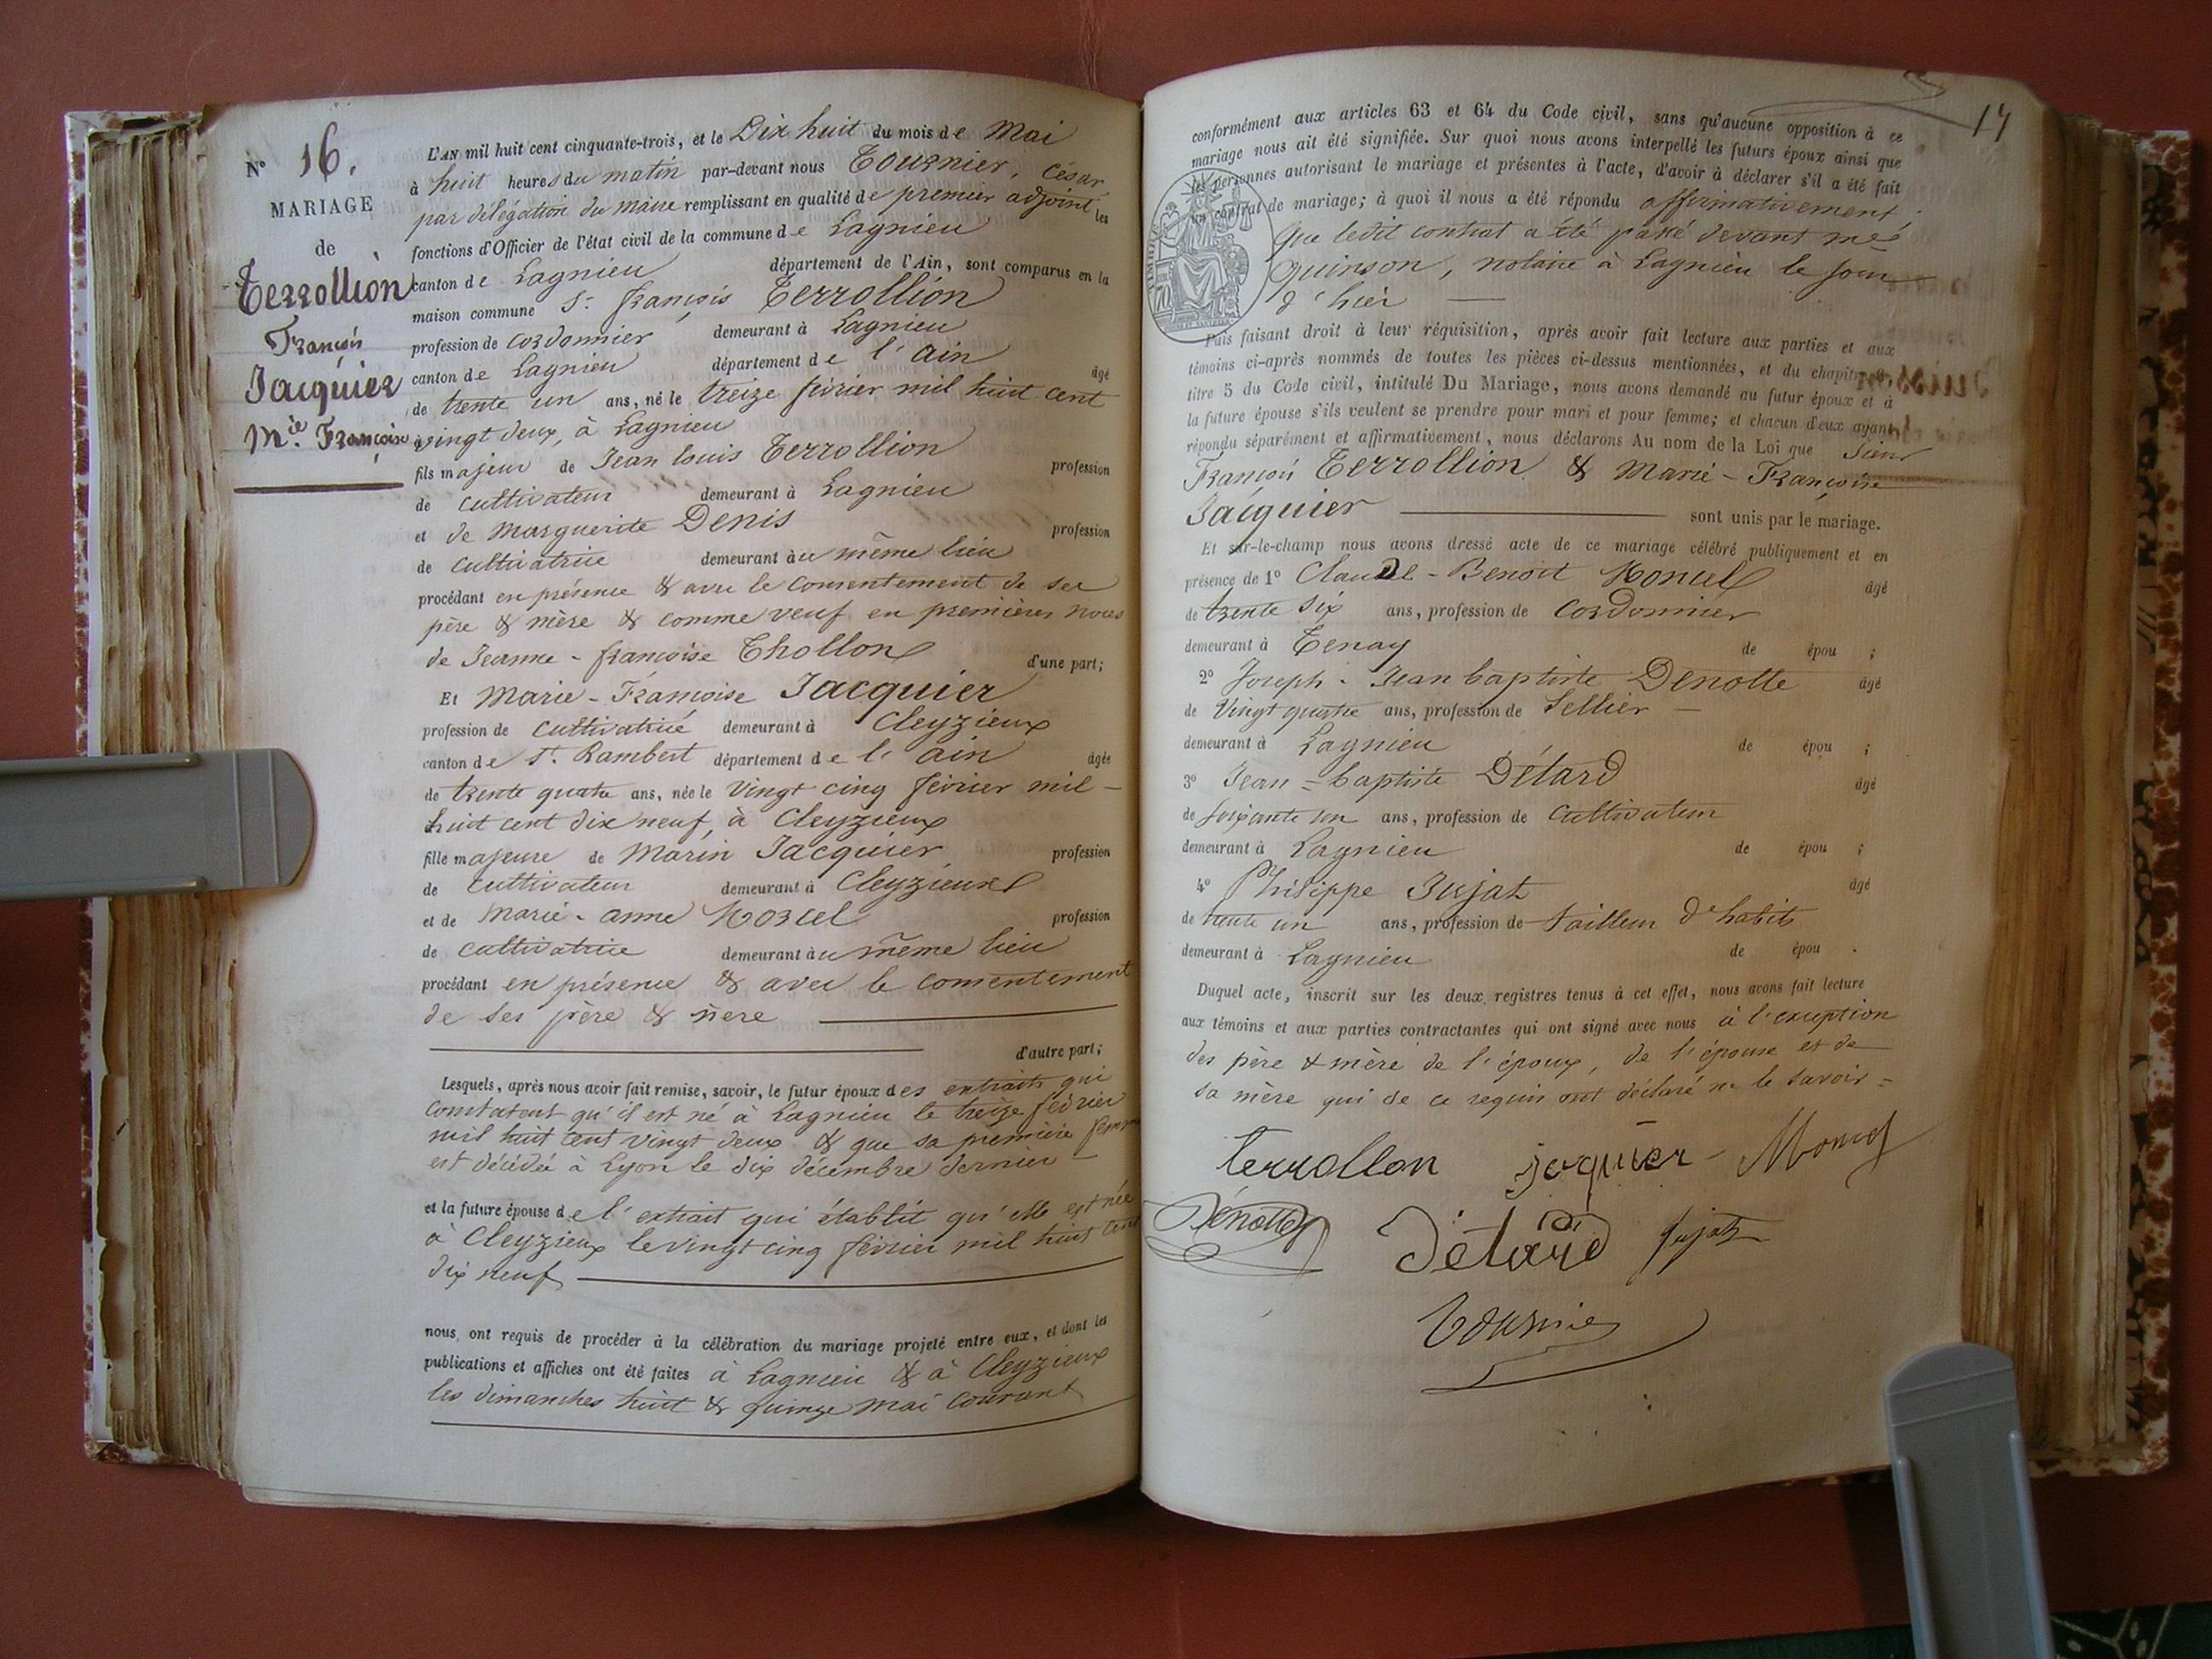 N° 16.
MARIAGE
de
Terrollion
François
Jacquier
Mie. Françoise
L'AN mil huit cent cinquante-trois, et le Dix huit du mois de Mai
à huit heures du matin par-devant nous Tournier, César
par délégation du Maire remplissant en qualité de premier adjoint les
fonctions d'Officier de l'état civil de la commune de Lagnieu
canton de Lagnieu département de l'Ain, sont comparus en la
maison commune Sr. françois Terrollion
profession de cordonnier demeurant à Lagnieu
canton de Lagnieu département de l'ain âgé
de trente un ans, né le treize février mil huit cent
vingt deux, à Lagnieu
fils majeur de Jean louis Terrollion profession
de cultivateur demeurant à Lagnieu
et de Marguerite Denis profession
de cultivatrice demeurant au même lieu
procédant en présence & avec le consentement de ses
père & mère & comme veuf en premières noces
de Jeanne-françoise Thollon d'une part;
Et Marie-Françoise Jacquier
profession de cultivatrice demeurant à Cleyzieux
canton de St. Rambert département de l'ain âgée
de trente quatre ans, née le vingt cinq février mil-
huit cent dix neuf, à Cleyzieux
fille majeure de Marin Jacquier profession
de cultivateur demeurant à Cleyzieux
et de Marie-anne profession
de cultivatrice demeurant au même lieu
procédant en présence & avec le consentement
de ses père & mère
d'autre part;
Lesquels, après nous avoir fait remise, savoir, le futur époux des extraits qui
constatent qu'il est né à Lagnieu le treize février
mil huit cent vingt deux & que sa première femme
est décédée à Lyon le dix décembre dernier
et la future épouse de l'extrait qui établit qu'elle est née
à Cleyzieux le vingt cinq février mil huit cent
dix neuf
nous ont requis de procéder à la célébration du mariage projeté entre eux, et dont les
publications et affiches ont été faites à Lagnieu & à Cleyzieux
les dimanches huit & quinze mai courant
17
conformément aux articles 63 et 64 du Code civil, sans qu'aucune opposition à ce
mariage nous ait été signifiée. Sur quoi nous avons interpellé les futurs époux ainsi que
les personnes autorisant le mariage et présentes à l'acte, d'avoir à déclarer s'il a été fait
un contrat de mariage; à quoi il nous a été répondu affirmativement
que ledit contrat a été passé devant me
Quinson, notaire à Lagnieu le jour
d'hier
Puis faisant droit à leur réquisition, après avoir fait lecture aux parties et aux
témoins ci-après nommés de toutes les pièces ci-dessus mentionnées, et du chapitre 6,
titre 5 du Code civil, intitulé Du Mariage, nous avons demandé au futur époux et à
la future épouse s'ils veulent se prendre pour mari et pour femme; et chacun d'eux ayant
répondu séparément et affirmativement, nous déclarons Au nom de la Loi que Sieur
François Terrollion & Marie-Françoise
Jacquier sont unis par le mariage.
Et sur-le-champ nous avons dressé acte de ce mariage célébré publiquement et en
présence de 1° Claude-Benoit Moncel âgé
de trente six ans, profession de cordonnier
demeurant à Tenay de épou ;
2° Joseph-Jean baptiste Denotte âgé
de vingt quatre ans, profession de Sellier
demeurant à Lagnieu de épou ;
3° Jean-baptiste Détard âgé
de soixante un ans, profession de cultivateur
demeurant à Lagnieu de épou ;
4° Philippe Jujat âgé
de trente un ans, profession de tailleur d'habits
demeurant à Lagnieu de épou .
Duquel acte, inscrit sur les deux registres tenus à cet effet, nous avons fait lecture
aux témoins et aux parties contractantes qui ont signé avec nous à l'exception
des père & mère de l'époux, de l'épouse et de
sa mère qui de ce requis ont déclaré ne le savoir =
terrollon jaquier Moncel
Dénotte Détard Jujat
Tournier